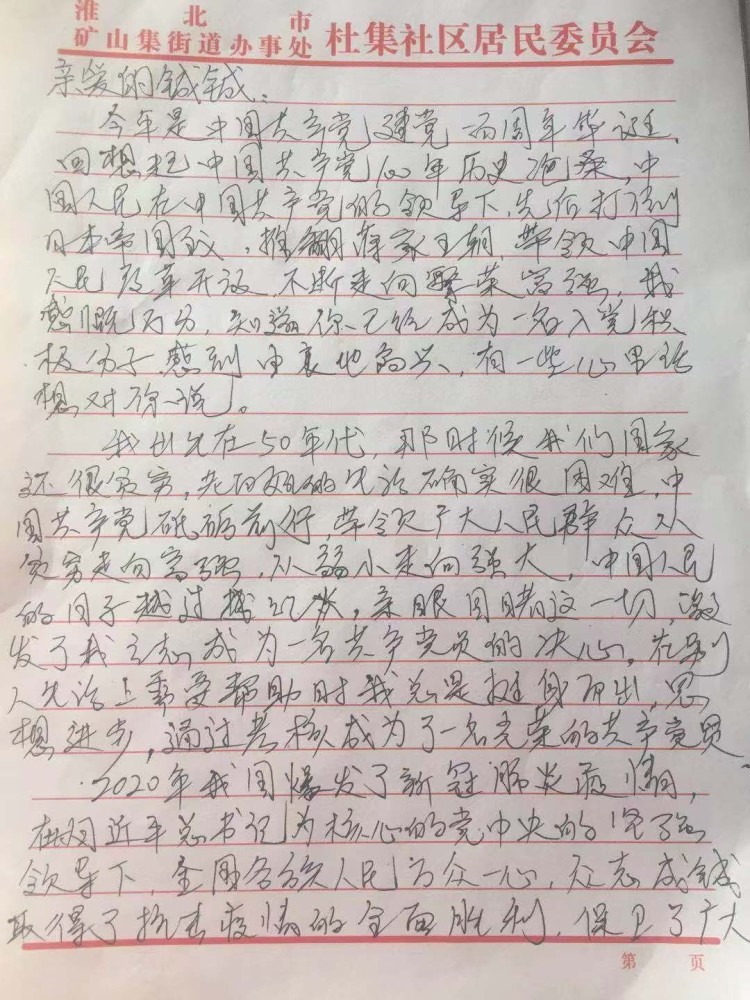 淮北市
矿山集街道办事处 杜集社区居民委员会
亲爱的铖铖：
今年是中国共产党建党百周年华诞，
回想起中国共产党100年历史沧桑，中
国人民在中国共产党的领导下，先后打倒
日本帝国主义，推翻蒋家王朝，带领中国
人民改革开放，不断走向繁荣富强，我
感慨万分，知道你已经成为一名入党积
极分子感到由衷地高兴，有一些心里话
想对你说。
我出生在50年代，那时候我们国家
还很贫穷，老百姓的生活确实很困难，中
国共产党砥砺前行，带领广大人民群众从
贫穷走向富强，从弱小走向强大，中国人民
的日子越过越红火，亲眼目睹这一切，激
发了我立志成为一名共产党员的决心，在别
人生活上需要帮助时我总是挺身而出，思
想进步，通过考核成为了一名光荣的共产党员
2020年我国爆发了新冠肺炎疫情，
在习近平总书记为核心的党中央的坚强
领导下，全国各族人民万众一心，众志成城
取得了抗击疫情的全面胜利，保卫了广大
第 页